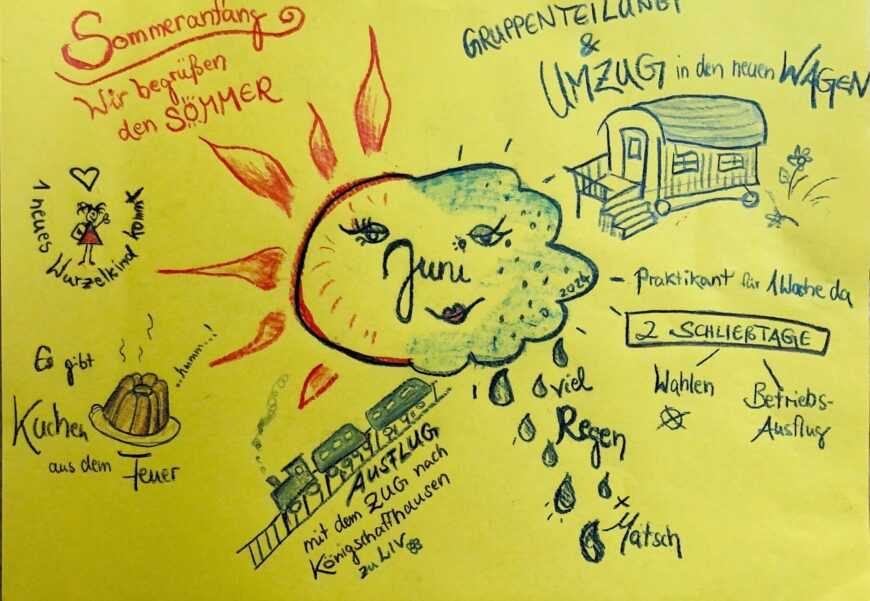 Sommeranfang
Wir begrüßen
den SOMMER
GRUPPENTEILUNG
&
UMZUG in den neuen WAGEN
1 neues Wurzelkind kommt
Juni
2024
- Praktikant für 1 Woche da
2 SCHLIEẞTAGE
Wahlen
Betriebs-
Ausflug
Es gibt
Kuchen
aus dem
Feuer
..hmmm...!
AUSFLUG
mit dem ZUG nach
Königschaffhausen
zu LIV
viel
Regen
x
Matsch